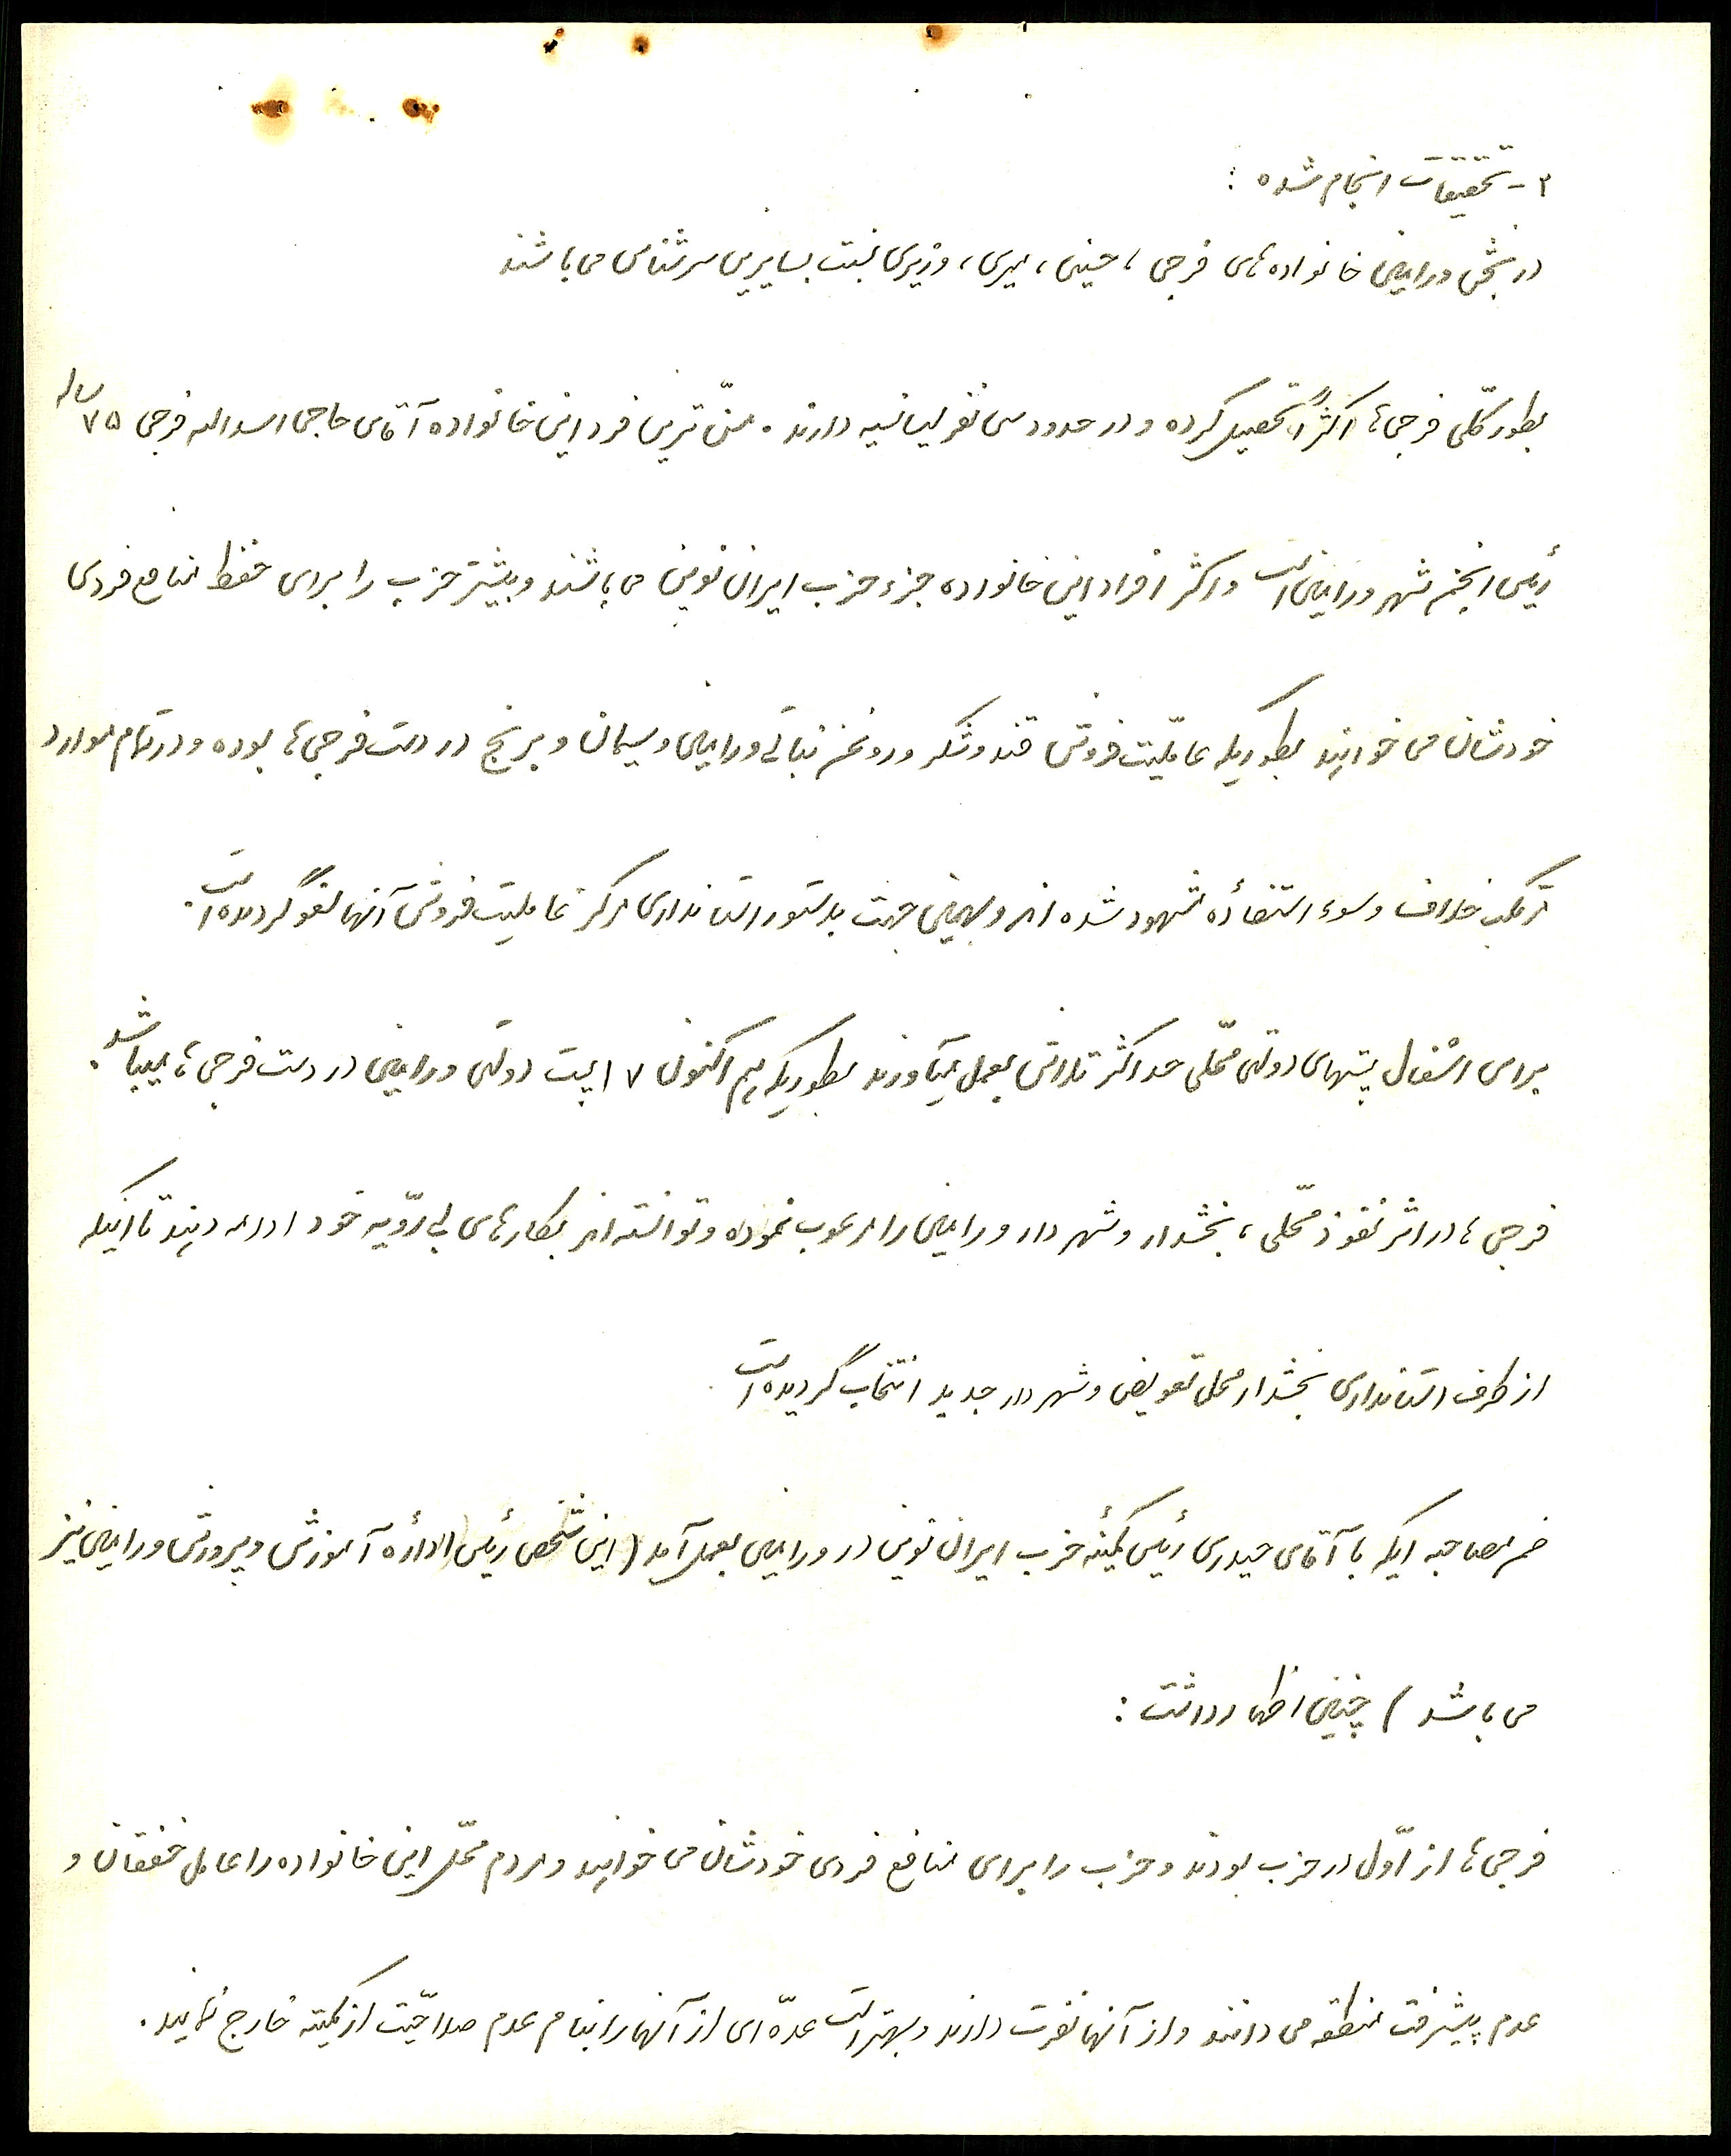 ۳- تحقیقات انجام شده :
در بخش ورامین خانواده های فرجی ، حسینی ، میری ، وزیری نسبت بسایرین سرشناس می باشند
بطور کلّی فرجی ها اکثراً تحصیل کرده و در حدود سی نفر لیسانسیه دارند . مسنّ ترین فرد این خانواده آقای حاجی اسداله فرجی ۷۵ ساله
رئیس انجمن شهر ورامین است و اکثر افراد این خانواده جزء حزب ایران نوین می باشند و بیشتر حزب را برای حفظ منافع فردی
خودشان می خواهند بطوریکه عاملیّت فروش قند و شکر و روغن نباتی ورامین و سیمان و برنج در دست فرجی ها بوده و در تمام موارد
مرتکب خلاف و سوء استفاده مشهود شده اند و بهمین جهت بدستور استانداری مرکز عاملیت فروش آنها لغو گردیده است .
برای اشغال پستهای دولتی محّلی حداکثر تلاش بعمل میآورند بطوریکه هم اکنون ۱۷ پست دولتی ورامین در دست فرجی ها میباشد .
فرجی ها در اثر نفوذ محّلی ، بخشدار و شهردار ورامین را مرعوب نموده و توانسته اند بکارهای بی رّویه خود ادامه دهند تا اینکه
از طرف استانداری بخشدار محل تعویض و شهردار جدید انتخاب گردیده است
ضم مصاحبه ایکه با آقای حیدری رئیس کمیتهٔ حزب ایران نوین در ورامین بعمل آمد ( این شخص رئیس ادارهٔ آموزش و پرورش ورامین نیز
می باشد ) چنین اظهار داشت :
فرجی ها از اوّل در حزب بودند و حزب را برای منافع فردی خودشان می خواهند و مردم محّل این خانواده را عامل خفقان و
عدم پیشرفت منطقه می دانند و از آنها نفرت دارند و بهتر است عدّه ای از آنها را بنام عدم صلاحیّت از کمیته خارج نمایند .